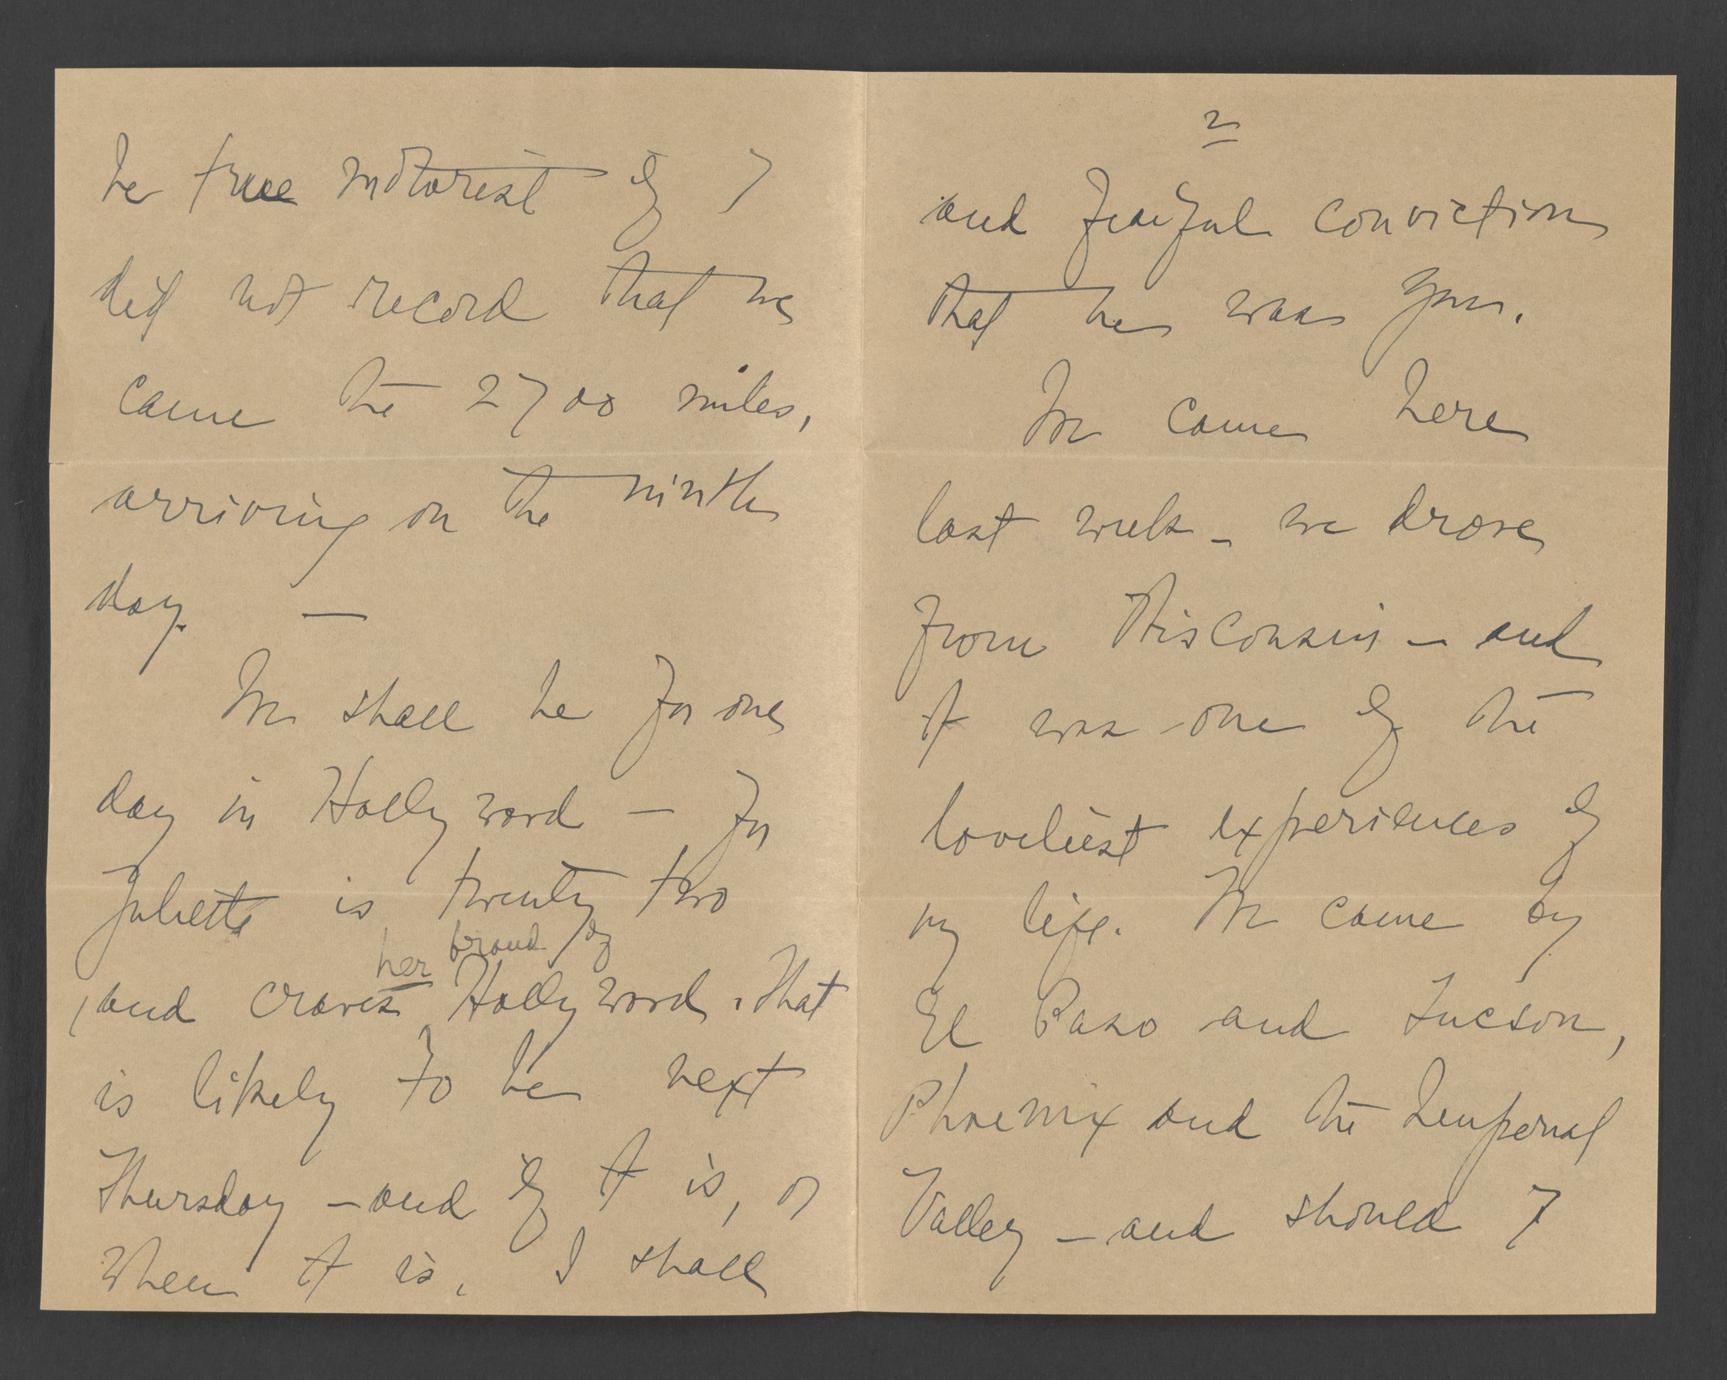 2
and fearful conviction
that he was you.
We came here
last week – we drove
from Wisconsin – and
it was one of the
loveliest experiences of
my life. We came by
El Paso and Tucson,
Phoenix and the Imperial
Valley – and should I
be true motorist if I
did not record that we
came the 2700 miles,
arriving on the ninth
day. —
We shall be for one
day in Hollywood — for
Juliette is twenty two
her brand of
and craves Hollywood. That
is likely to be next
Thursday – and if it is, or
when it is, I shall